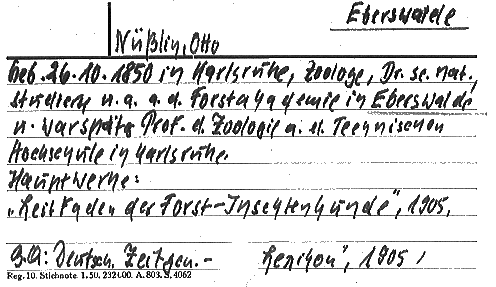 Eberswalde
Nüßlin, Otto
Geb. 26.10.1850 in Karlsruhe, Zoologe, Dr. sc. nat.,
studierte u. a. a. d. Forstakademie in Eberswalde
u. war später Prof. d. Zoologie a. d. Technischen
Hochschule in Karlsruhe.
Hauptwerke:
„Leitfaden der Forst-Insektenkunde", 1905,
B.A: Deutsch. Zeitgen.- Lexikon", 1905,
Reg. 10. Stichnote. 1. 50. 232000. A. 803. S. 4062